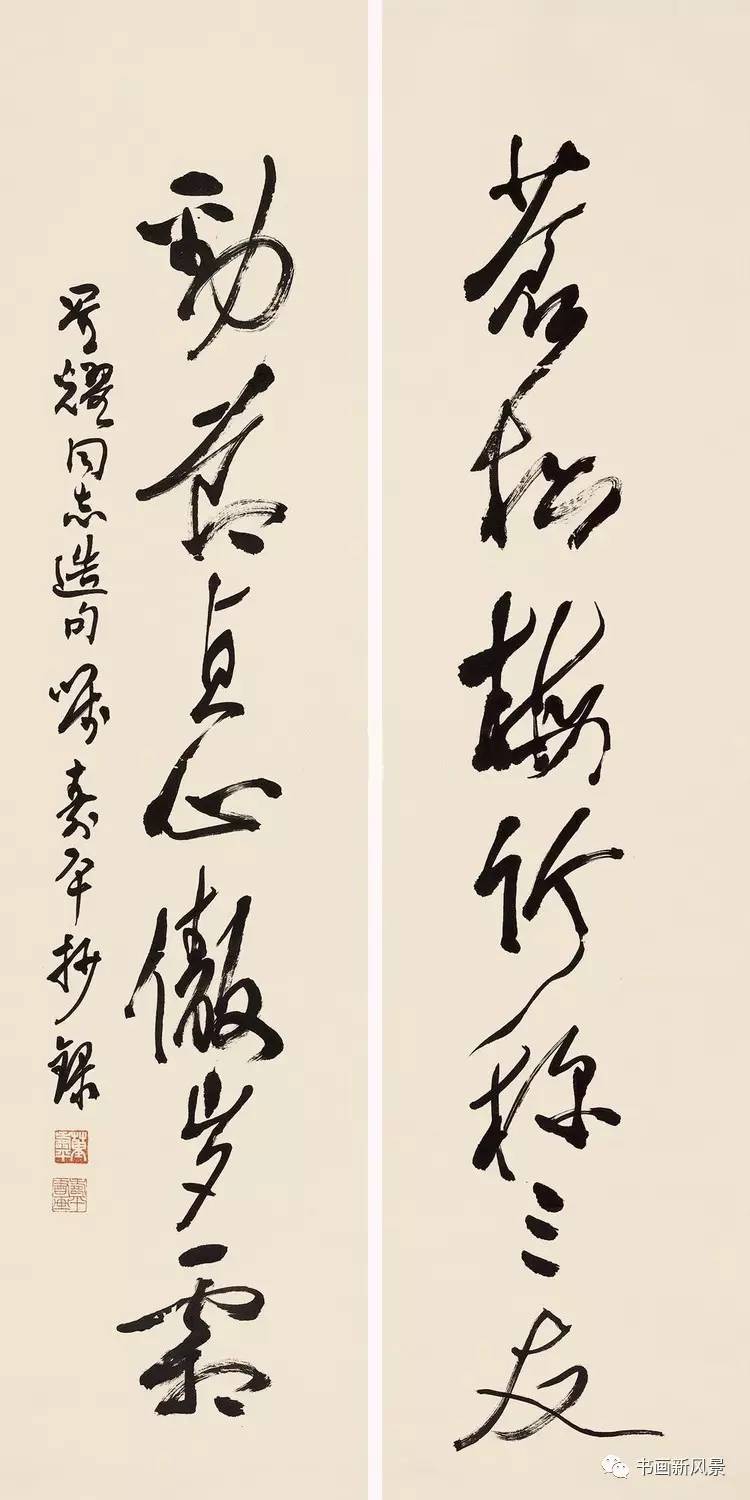 苍松梅竹称三友
劲节贞心傲岁霜
耀同志造句嘱寿平抄录
书画新风景